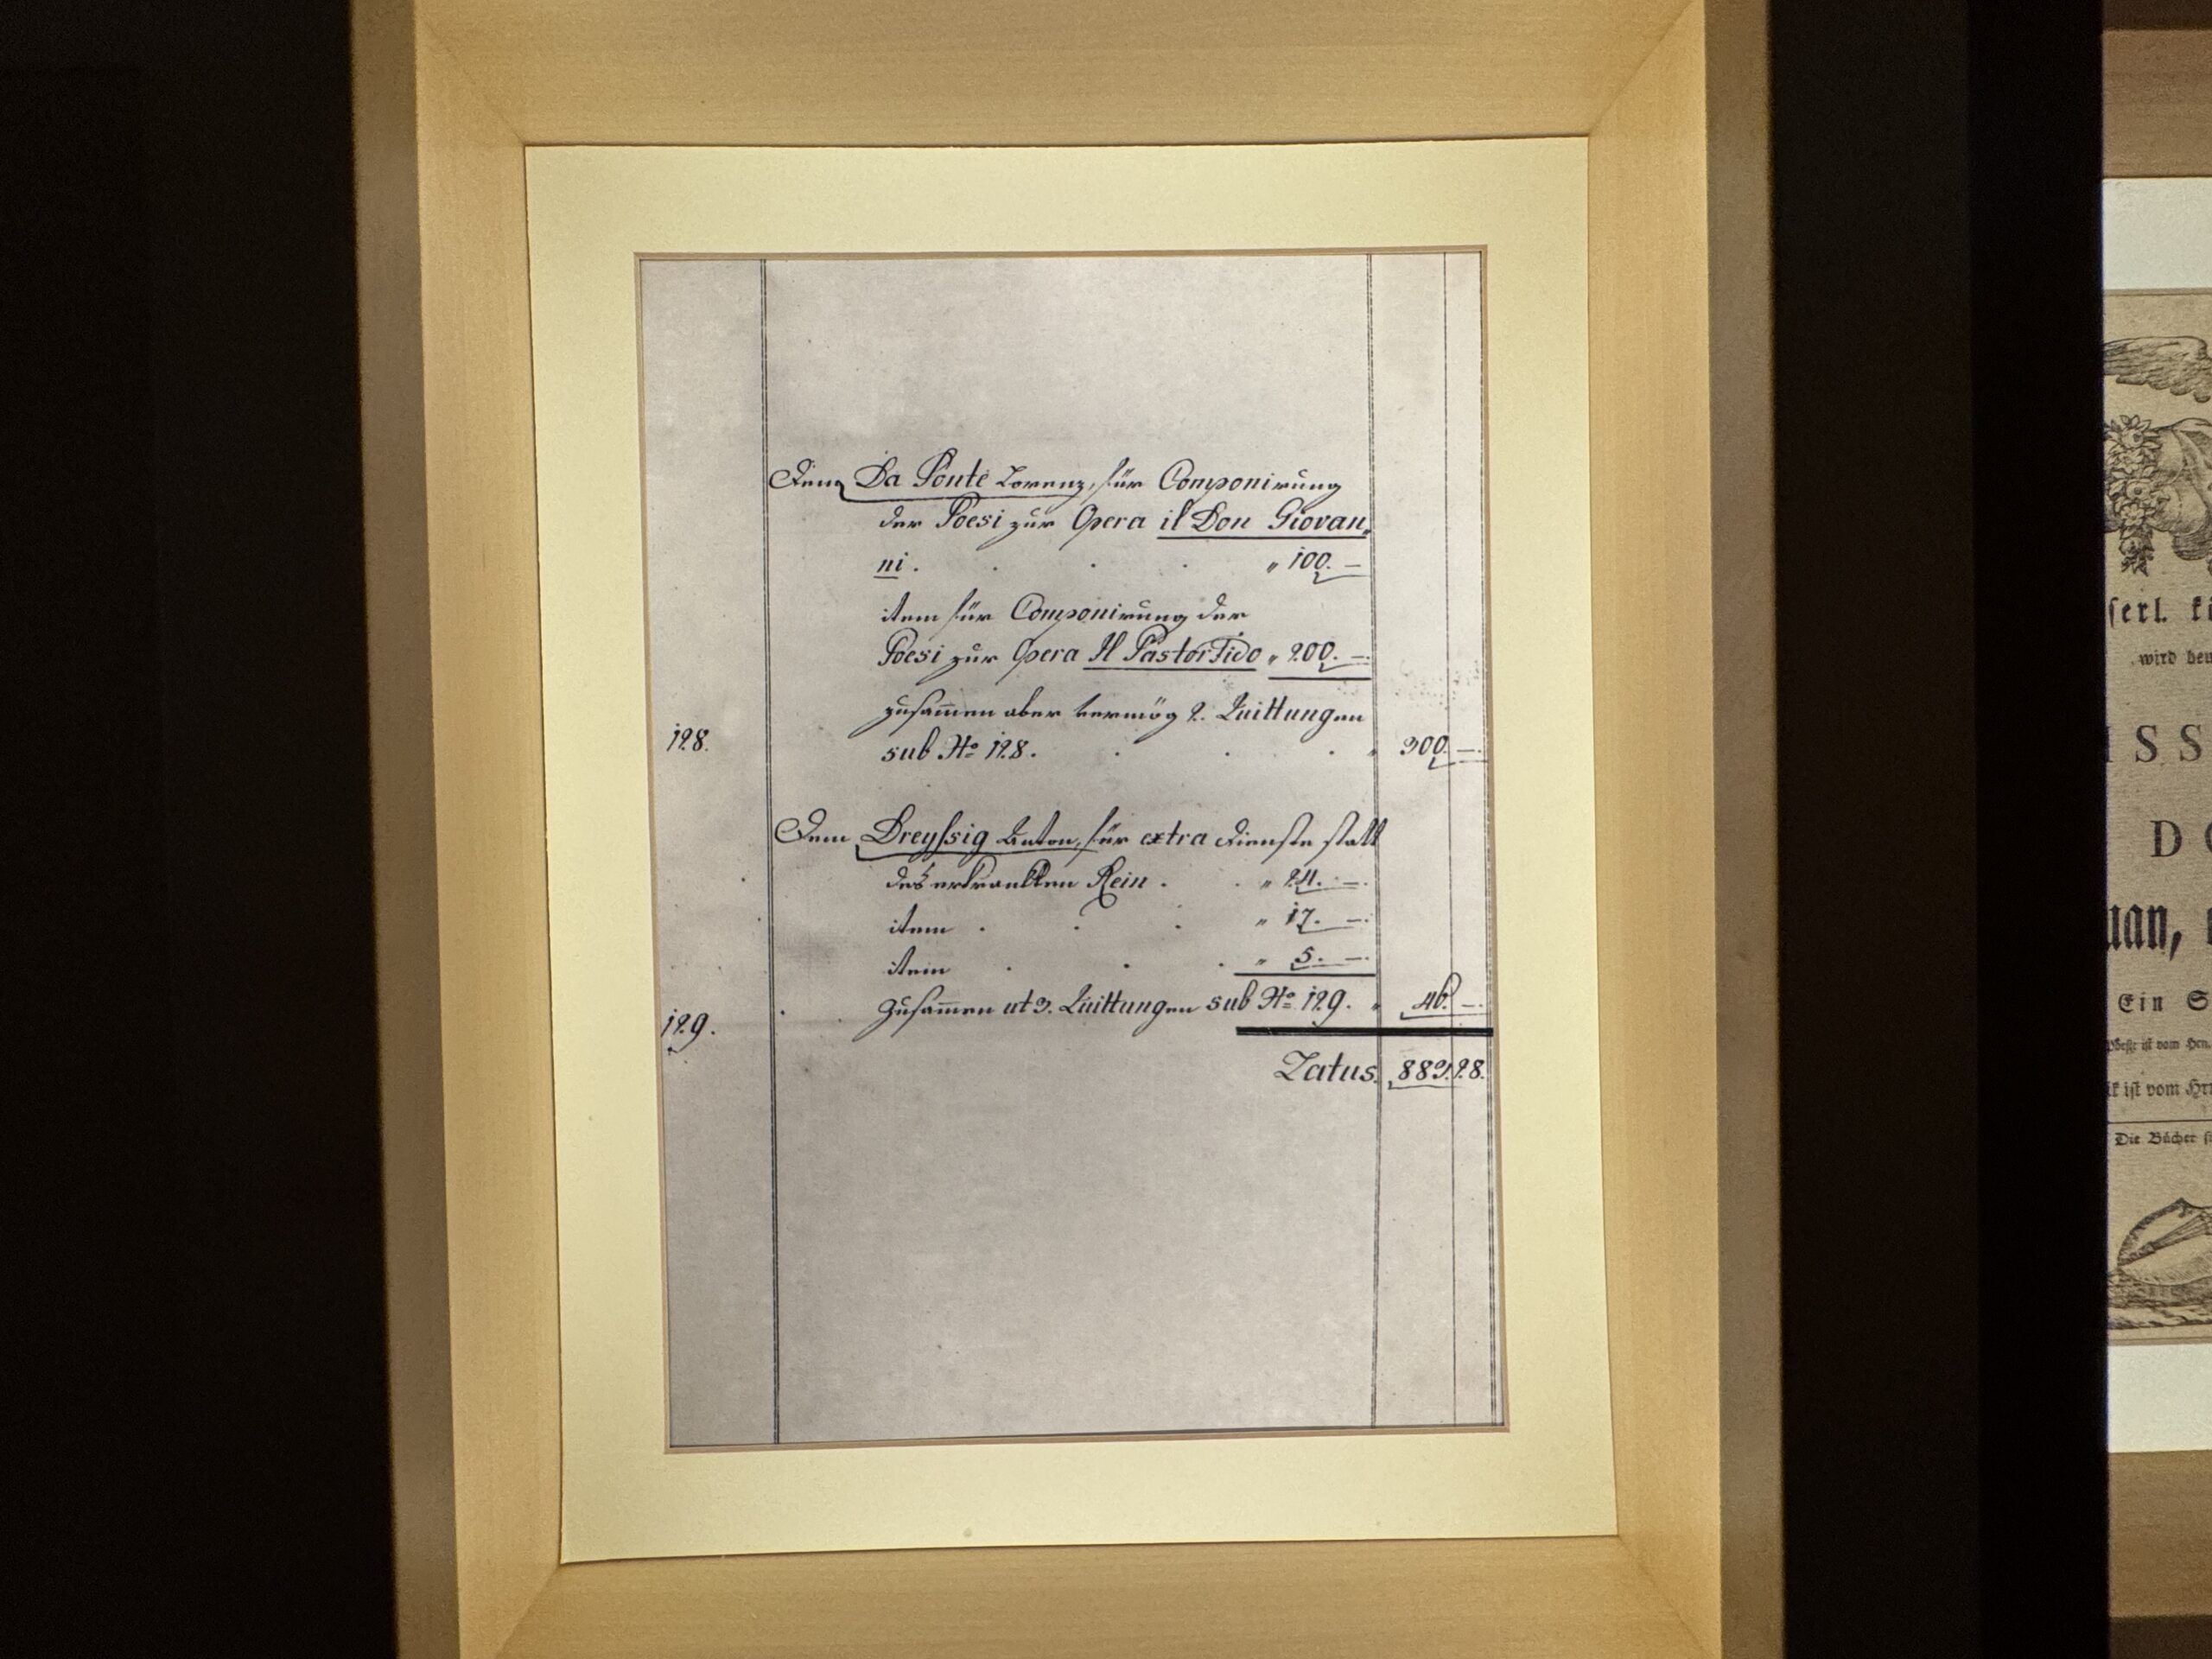 Dem Da Ponte Lorenz, für Componirung
der Poesi zur Opera il Don Giovan„
ni . . . . „ 100. —
item für Componirung der
Poesi zur Opera Il Pastor Fido „ 200. —.
zusam̅en aber vermög 2. Quittungen
128. sub No 128. . . . „ 300. —.
Dem Dreyssig Anton, für extra Dienste statt
des erkrankten Rein . . „ 24. —.
item . . . „ 17. —.
item . . . „ 5. —.
129. Zusam̅en ut 3. Quittungen sub No 129. „ 46. —.
Latus. 883. 28.
serl.
wird heu
ISS
D
uan,
Ein S
ist vom Hrn.
ik ist vom Hrn
Die Bücher